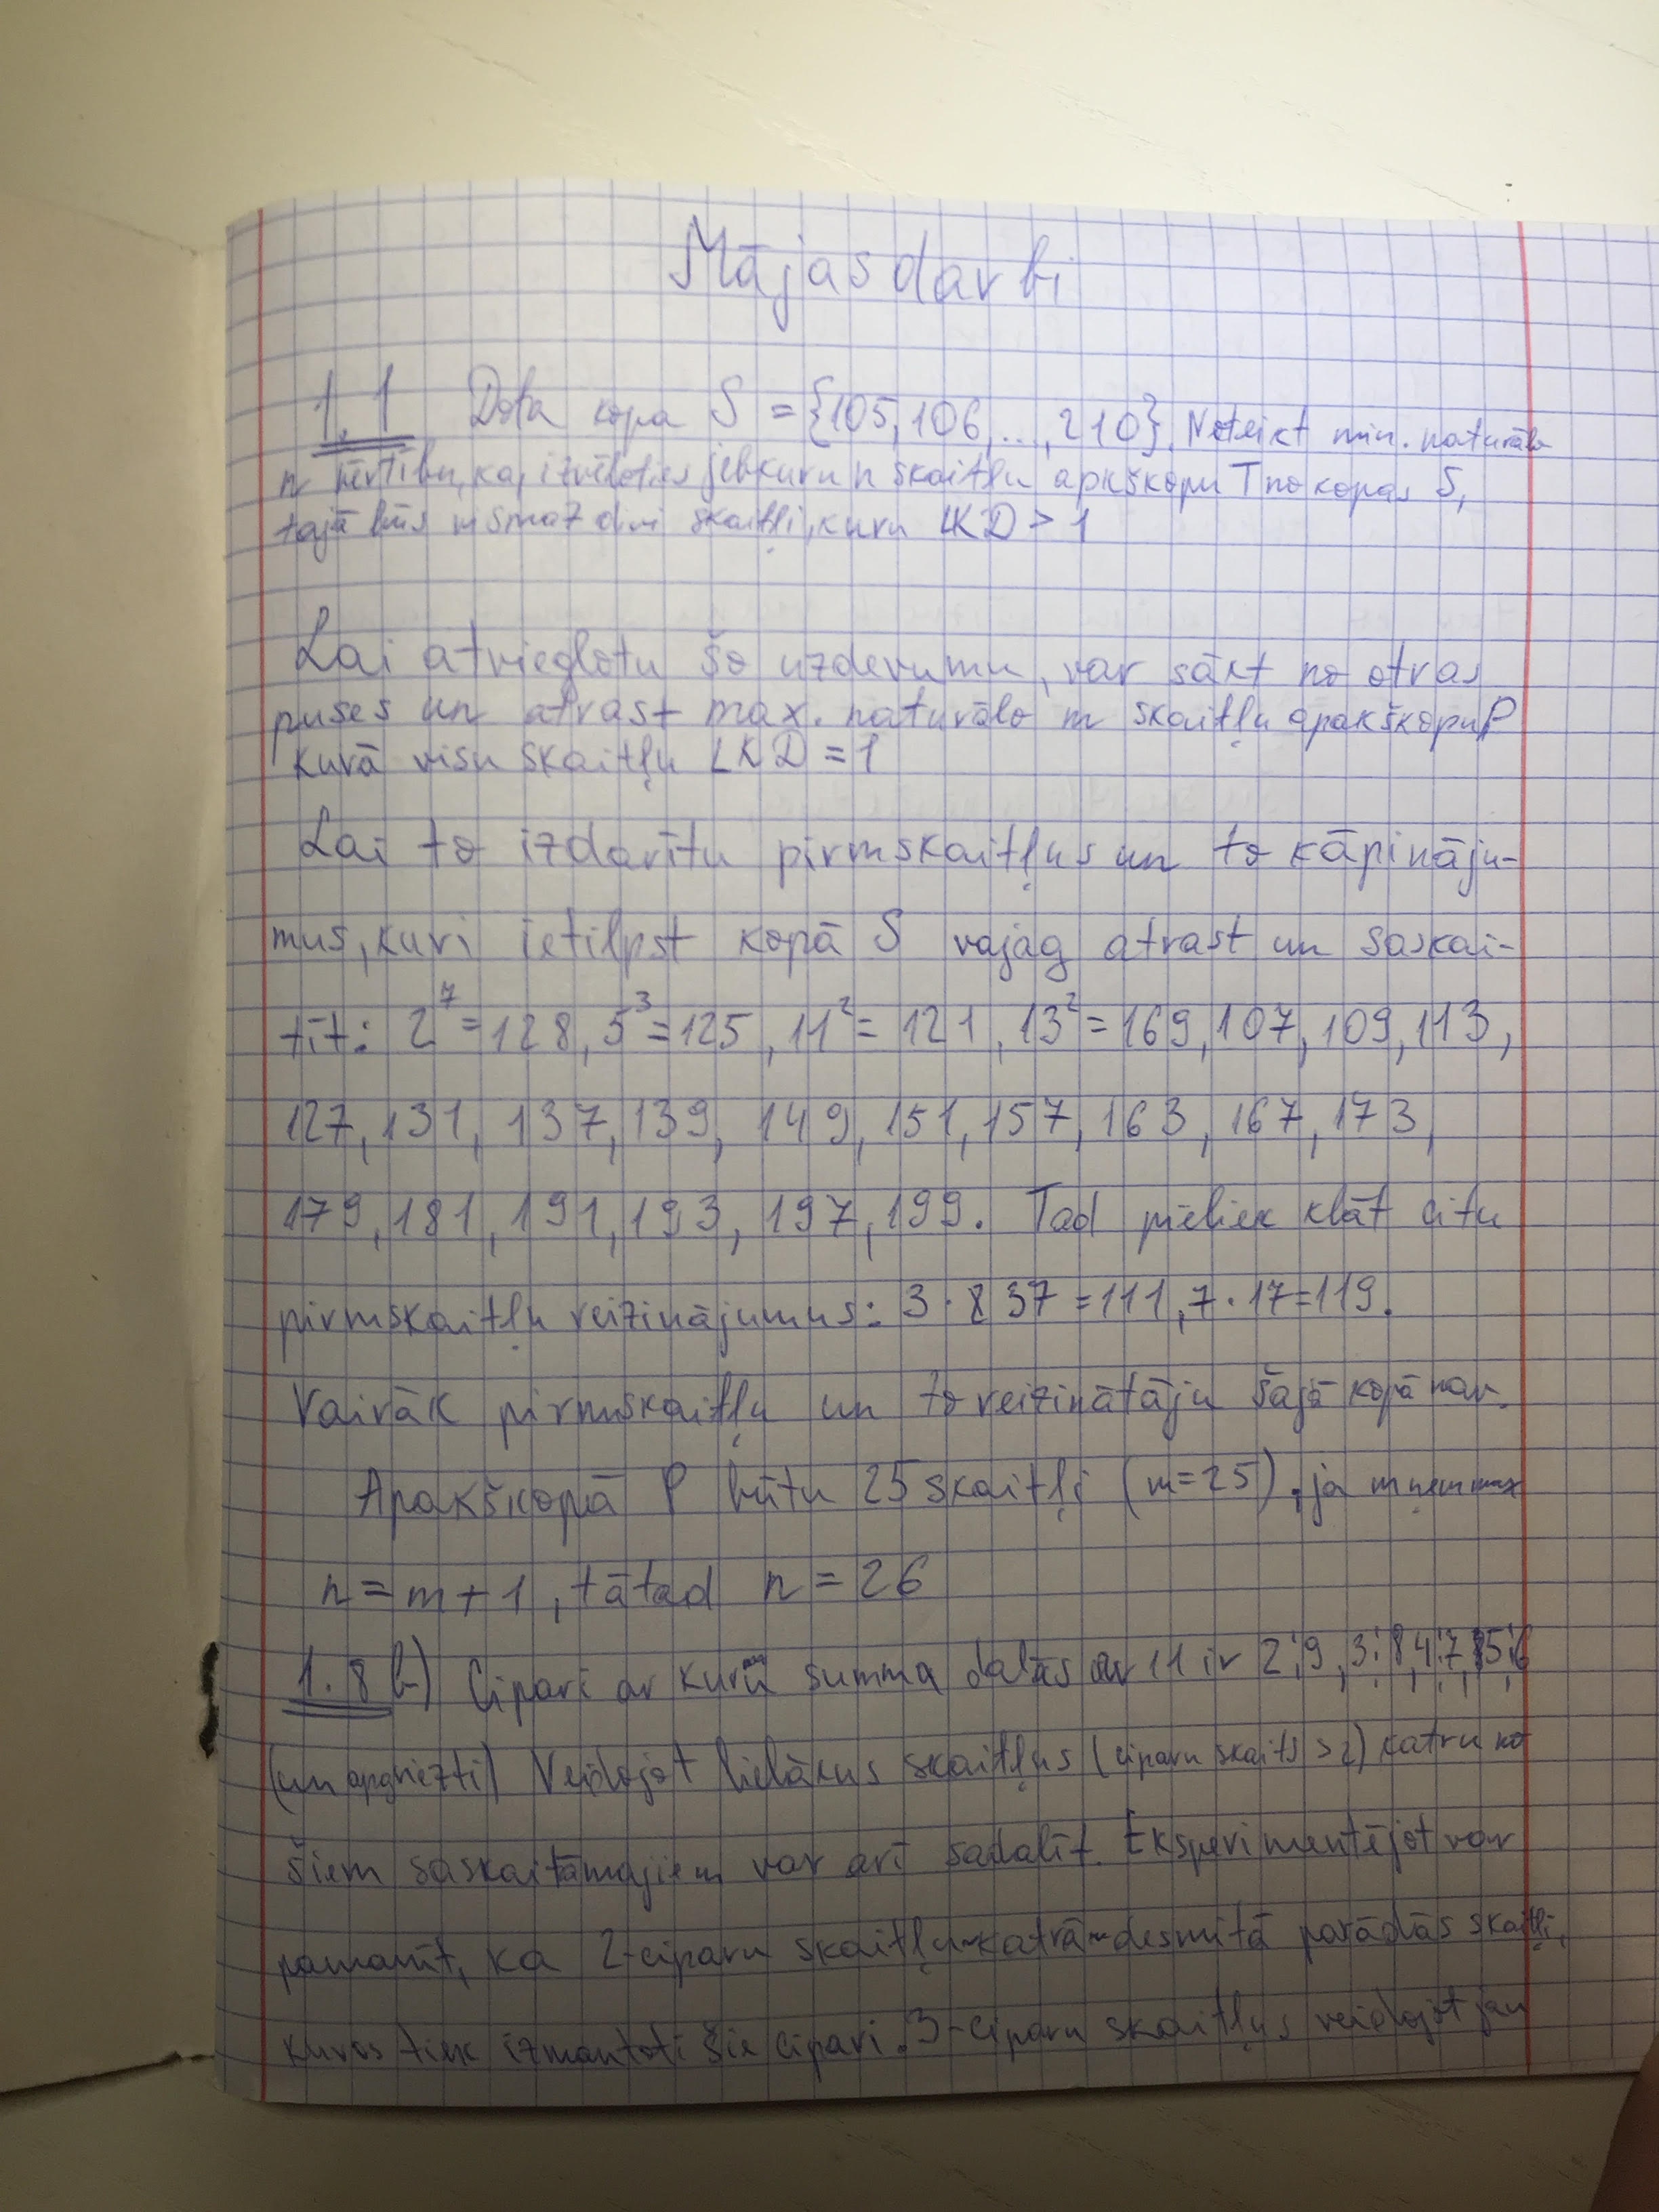 Mājas darbi
1.1 Dota kopa S = {105, 106, ..., 210}. Noteikt min. naturālo
n vērtību, ka, izvēloties jebkuru n skaitļu apkškopu T no kopas S,
tajā būs vismaz divi skaitļi, kuru LKD > 1
Lai atvieglotu šo uzdevumu, var sākt no otras
puses un atrast max. naturālo m skaitļu apakškopu P
kurā visu skaitļu LKD = 1
Lai to izdarītu pirmskaitļus un to kāpināju-
mus, kuri ietilpst kopā S vajag atrast un saskai-
tīt: 2^7 = 128, 5^3 = 125, 11^2 = 121, 13^2 = 169, 107, 109, 113,
127, 131, 137, 139, 149, 151, 157, 163, 167, 173,
179, 181, 191, 193, 197, 199. Tad pieliek klāt citu
pirmskaitļu reizinājumus: 3 · 37 = 111, 7 · 17 = 119.
Vairāk pirmskaitļu un to reizinātāju šajā kopā nav.
Apakškopā P būtu 25 skaitļi (m = 25), ja m ņem max
n = m + 1, tātad n = 26
1.8 b) Cipari ar kuru summa dalās ar 11 ir 2;9, 3;8, 4;7, 5;6
(un apgriezti) Veidojot lielākus skaitļus (ciparu skaits > 2) katru no
šiem saskaitāmajiem var arī sadalīt. Eksperimentējot var
pamanīt, ka 2-ciparu skaitļu katrā desmitā parādās skaitļi,
kuros tiek izmantoti šie cipari. 3-ciparu skaitļus veidojot jau